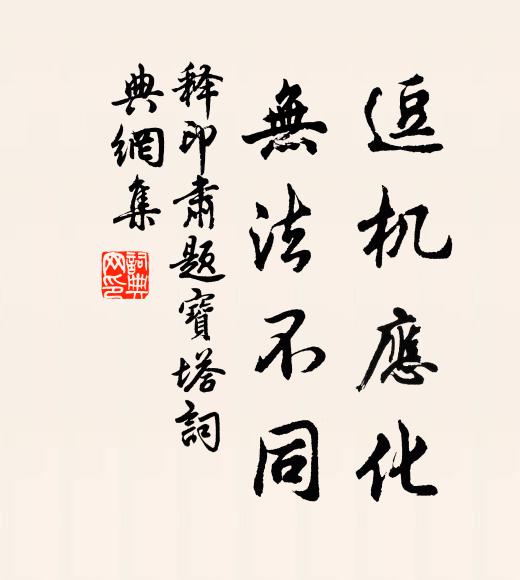 逗机應化
無法不同
释印肅題寶塔詞
典網集
詞典網印